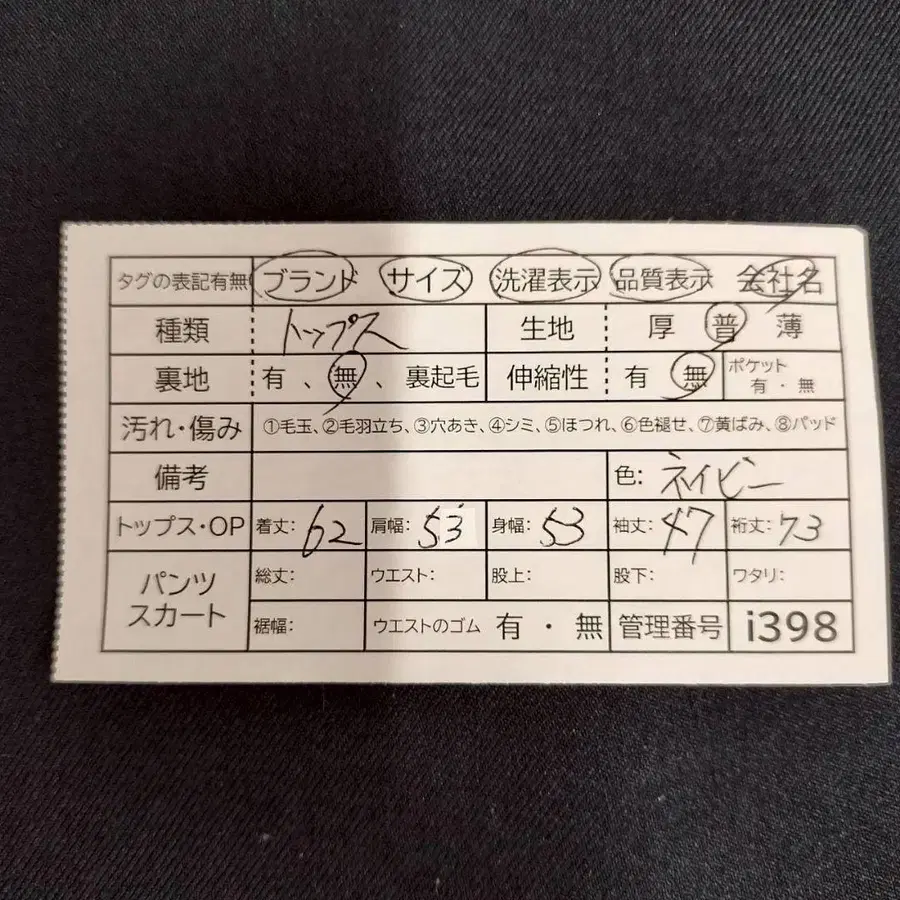 タグの表記有無 ブランド サイズ 洗濯表示 品質表示 会社名
種類 トップス 生地 厚 普 薄
裏地 有 、 無 、 裏起毛 伸縮性 有 無 ポケット 有 ・ 無
汚れ・傷み ①毛玉、②毛羽立ち、③穴あき、④シミ、⑤ほつれ、⑥色褪せ、⑦黄ばみ、⑧パッド
備考 色: ネイビー
トップス・OP 着丈: 62 肩幅: 53 身幅: 53 袖丈: 47 裄丈: 73
パンツ スカート 総丈: ウエスト: 股上: 股下: ワタリ:
裾幅: ウエストのゴム 有 ・ 無 管理番号 i398